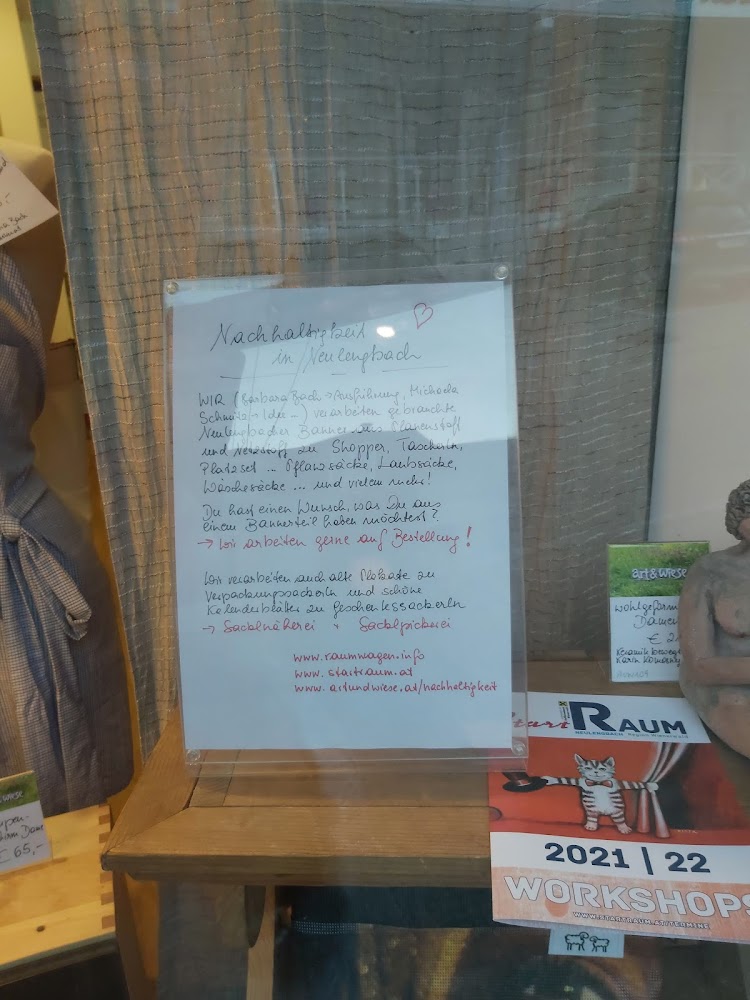 Nachhaltigkeit
in Neulengbach
WIR (Barbara Bach → Ausführung, Michaela
verarbeiten gebrauchte
Neulengbacher Banner aus Planenstoff
und Netzstoff zu Shopper, Tascherln,
Platzset ... Pflanzsäcke, Laubsäcke,
Wäschesäcke ... und vielem mehr!
Du hast einen Wunsch, was Du aus
einem Bannerteil haben möchtest?
→ Wir arbeiten gerne auf Bestellung!
Wir verarbeiten auch alte Plakate zu
Verpackungssackerln und schöne
Kalenderblätter zu Geschenkssackerln
→ Sacklnäherei + Sacklpickerei
www.raumwagen.info
www.startraum.at
www.artundwiese.at/nachhaltigkeit
art&wiese
wohlgeform
Damen
€ 2
Keramik bewegt
Karin Komarny
Start RAUM
NEULENGBACH
2021 | 22
WORKSHOPS
WWW.STARTRAUM.AT/TERMINE
€ 65,-